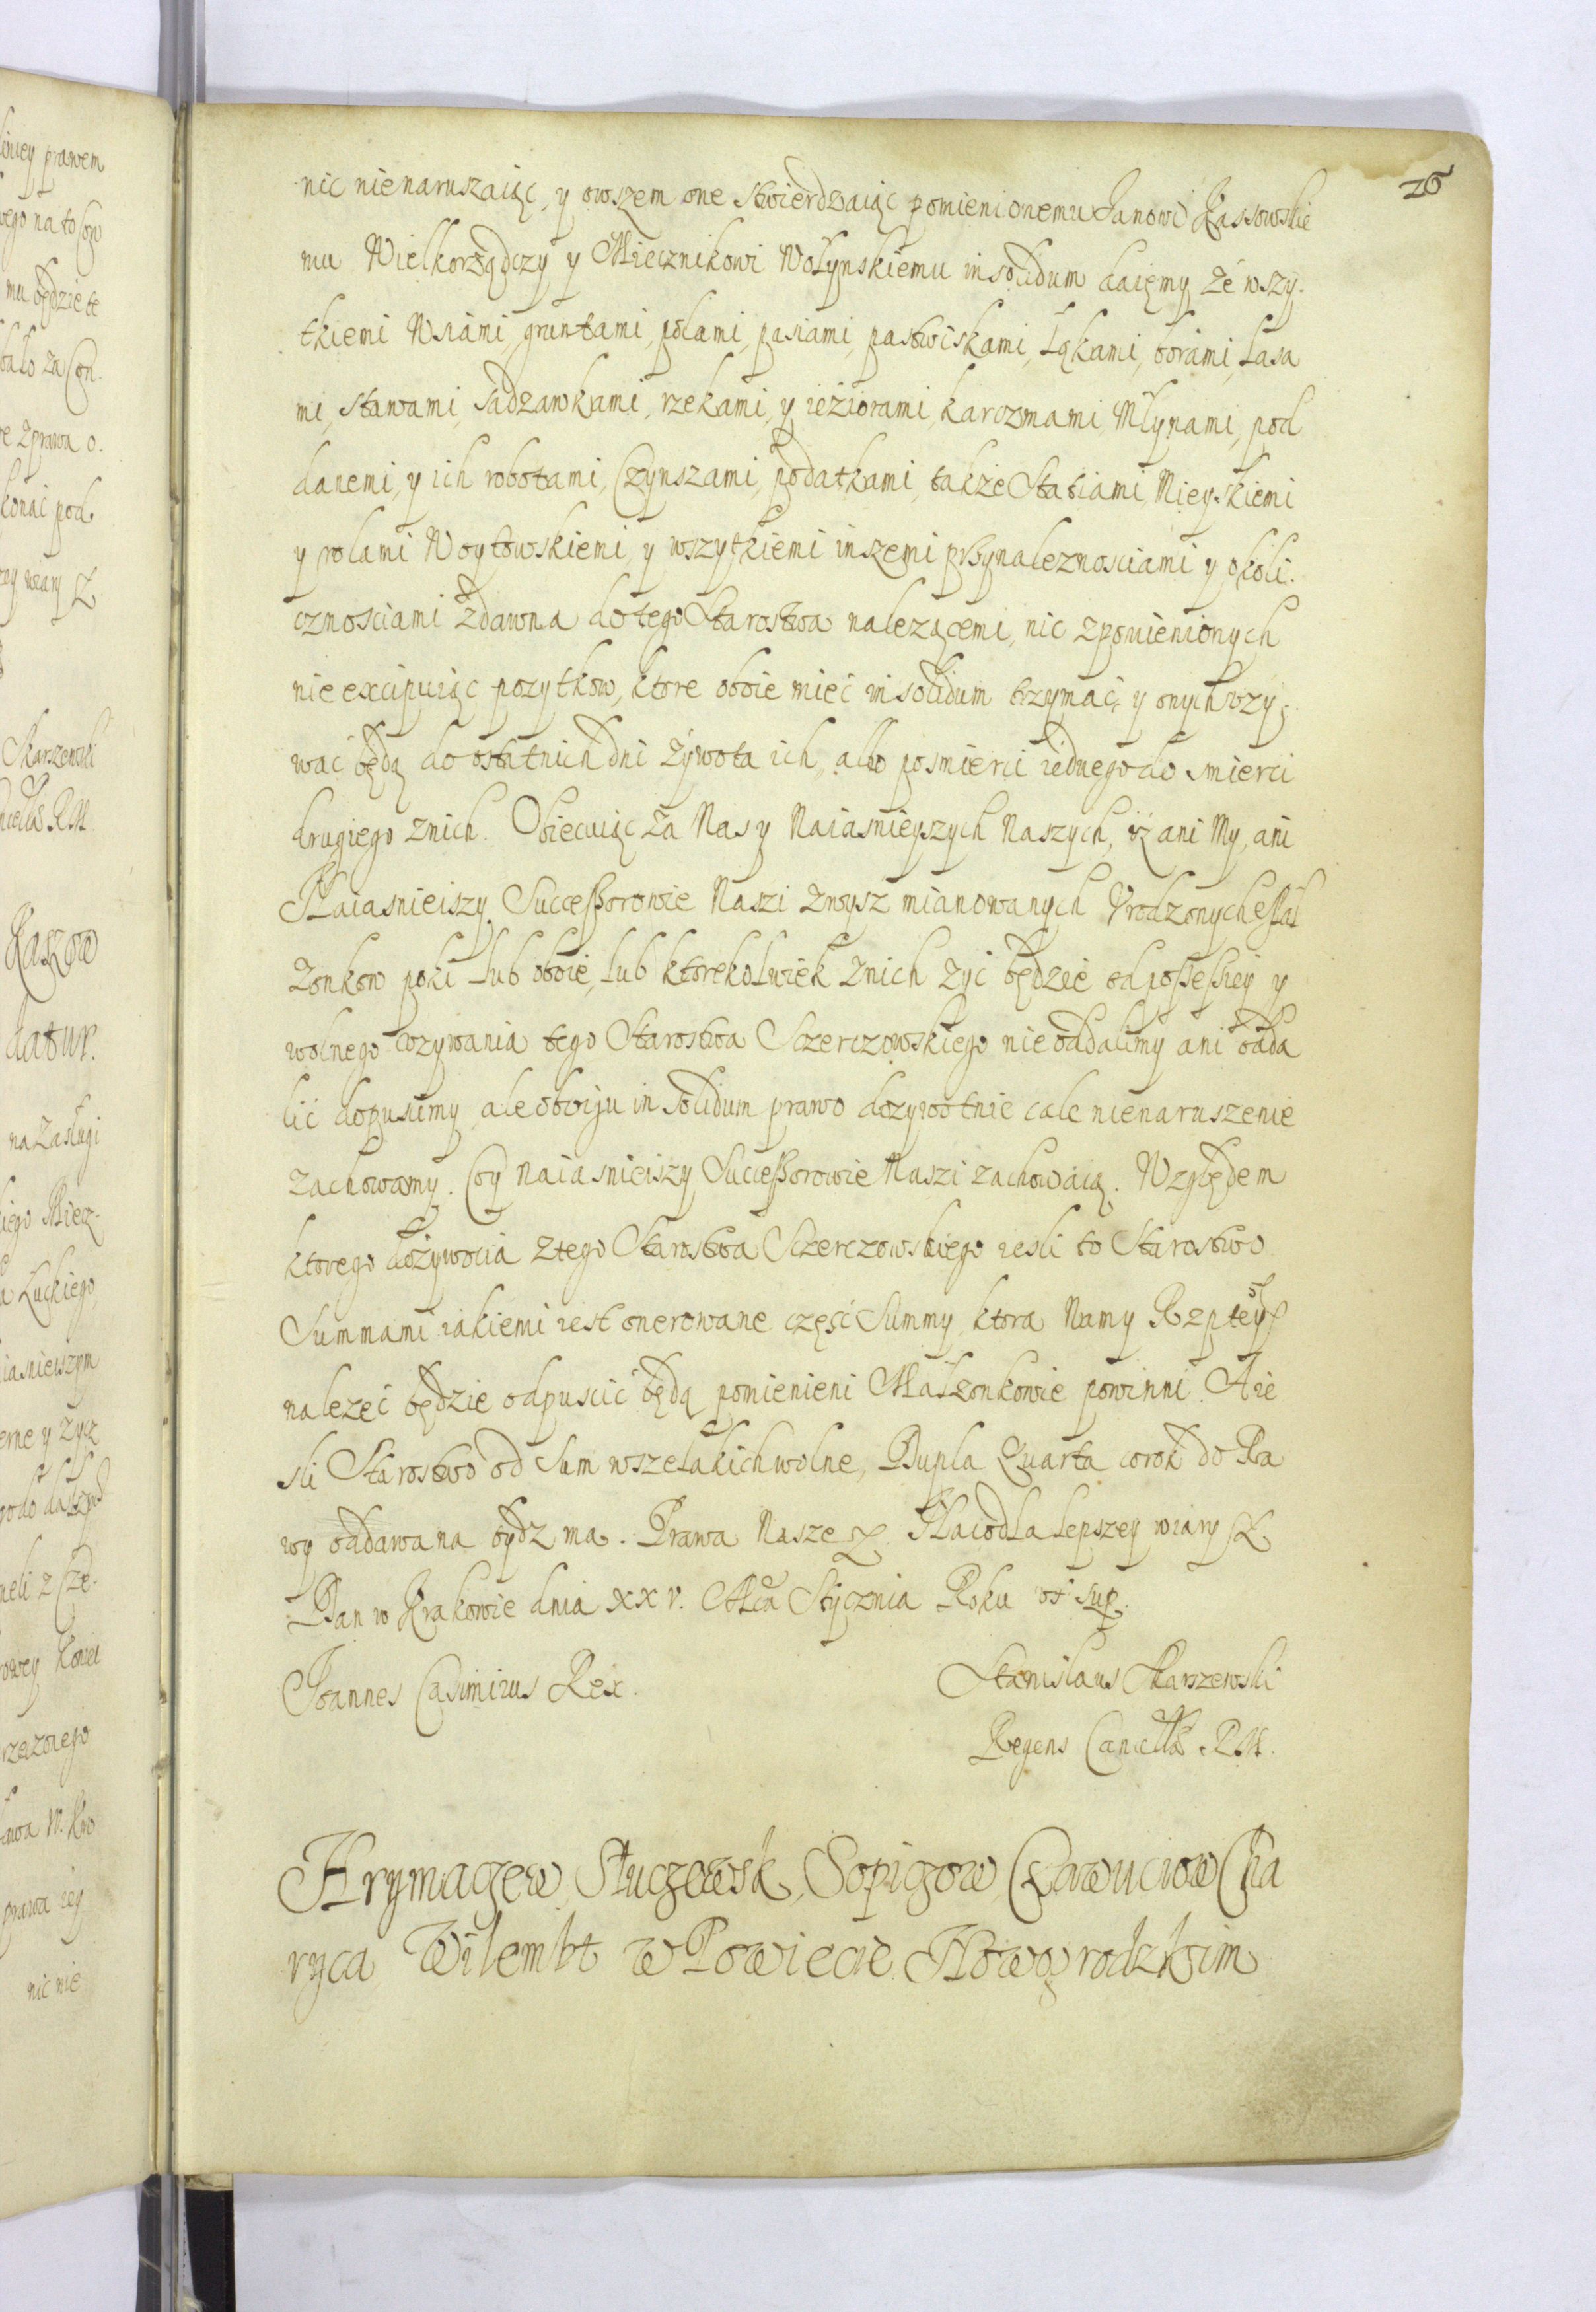 26
nic nienaruszaiąc, y owszem one stwierdzaiąc pomienionemu Janowi Rassowskie
mu Wielkorządczy y Miecznikowi Wołynskiemu in solidum daięmy ze wszy-
tkiemi Wsiami, gruntami, polami, pasiami, pastwiskami, Łąkami, borami, Lasa
mi, stawami, sadzawkami, rzekami, y ieziorami, karczmami, Młynami, pod
danemi, y ich robotami, Czynszami, podatkami, także Statiami Mieyskiemi
y rolami Woytowskiemi, y wszytkiemi inszemi przynaleznosciami y okoli-
cznosciami zdawna do tego Starostwa nalezącemi, nic z pomienionych
nie excipuiąc pozytkow, ktore oboie mieć in solidum trzymać, y onych vzy-
wać będą do ostatnich dni żywota ich, albo po smierci iednego do smierci
drugiego z nich. Obiecuiąc za Nas y Naiasnieyszych Naszych, iż ani My, ani
Naiasnieiszy Successorowie Naszi zwysz mianowanych Vrodzonych Mał
zonkow poki lub oboie, lub ktorekolwiek z nich zyć będzie od possessiey y
wolnego vzywania tego Starostwa Sczerczowskiego nie oddalimy ani odda
lić dopusimy, ale oboyju in solidum prawo dozywotnie cale nienaruszenie
zachowamy. Co y Naiasnieiszy Successorowie Naszi zachowaią. Względem
ktorego dożywocia z tego Starostwa Sczerczowskiego iesli to Starostwo
Summami iakiemi iest onerowane część Summy ktora Namy Rzptey
nalezeć będzie odpuscić będą pomienieni Małzonkowie powinni. A ie
sli Starostwo od Sum wszelakich wolne, Dupla Quarta corok do Ra
wy oddawana bydz ma. Prawa Nasze &. Na co dla lepszey wiary &.
Dan w Krakowie dnia XXV. Mca Stycznia Roku vt sup.
Joannes Casimirus Rex.
Stanislaus Skarszewski
Regens Cancellae R.M.
Krymaczew, Stuczowsk, Sopigow Czawuciow Cha
ryca Wilembt w Powiecie Nowogrodzkim